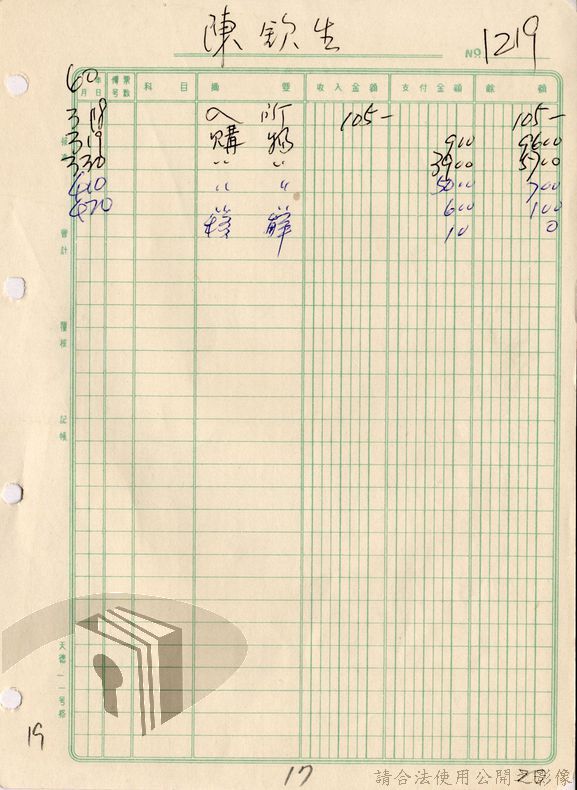 陳欽生
№ 1219
60年 月日 傳票号数 科目 摘要 收入金額 支付金額 餘額
3 18 入所 105- 105-
3 19 購物 900 9600
3 30 〃 〃 3900 5700
4 10 〃 〃 5000 700
4 20 600 100
移 10 0
會計
覆核
記帳
天德一一号格
19
17
請合法使用公開之影像